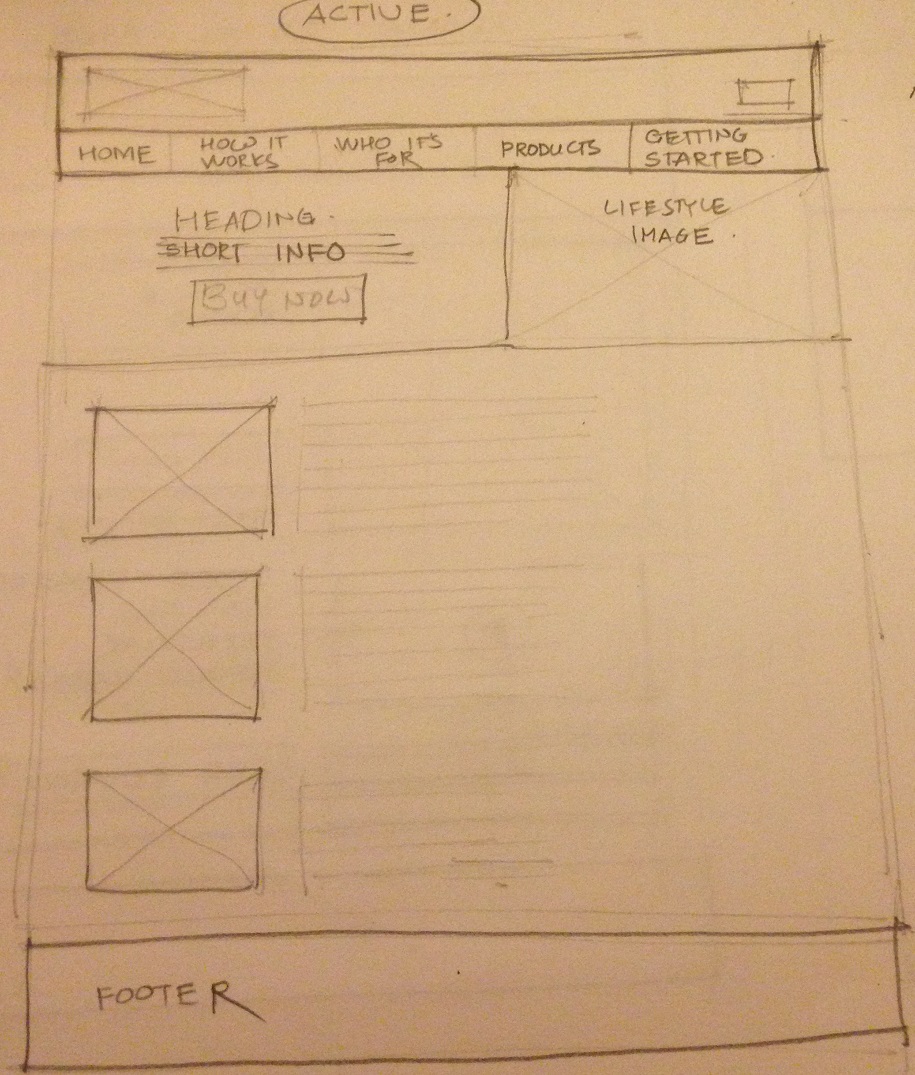 ACTIVE.
HOME
HOW IT
WORKS
WHO IT'S
FOR
PRODUCTS
GETTING
STARTED.
HEADING.
SHORT INFO
BUY NOW
LIFESTYLE
IMAGE.
FOOTER